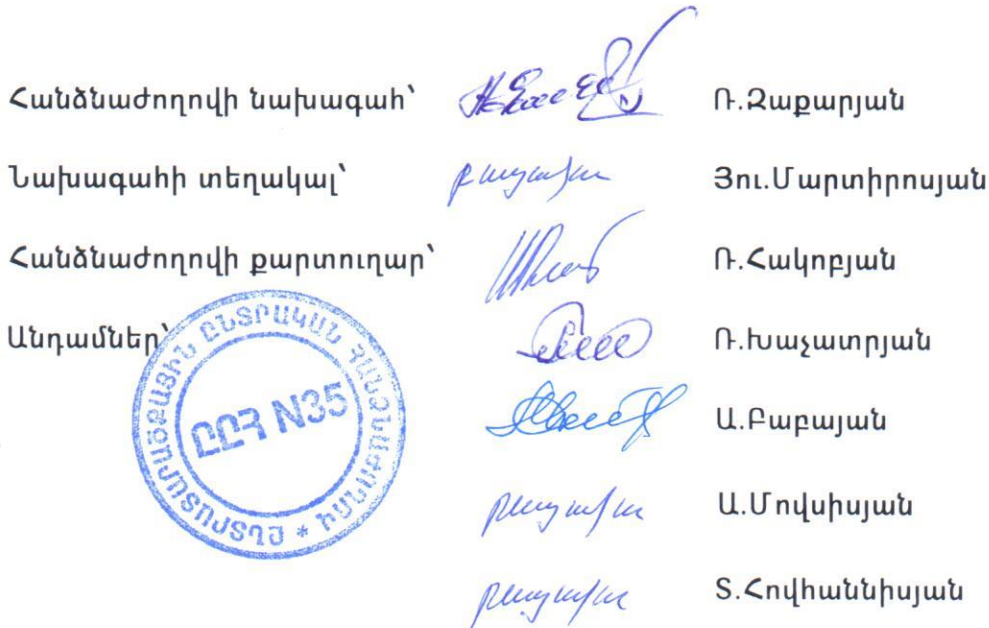 Հանձնաժողովի նախագահ՝ Ռ.Զաքարյան
Նախագահի տեղակալ՝ բացակա Յու.Մարտիրոսյան
Հանձնաժողովի քարտուղար՝ Ռ.Հակոբյան
Անդամներ՝ Ռ.Խաչատրյան
Ա.Բաբայան
բացակա Ա.Մովսիսյան
բացակա Տ.Հովհաննիսյան
ԸԸՀ N35
ԸՆՏՐԱԿԱՆ ՀԱՆՁՆԱԺՈՂՈՎ